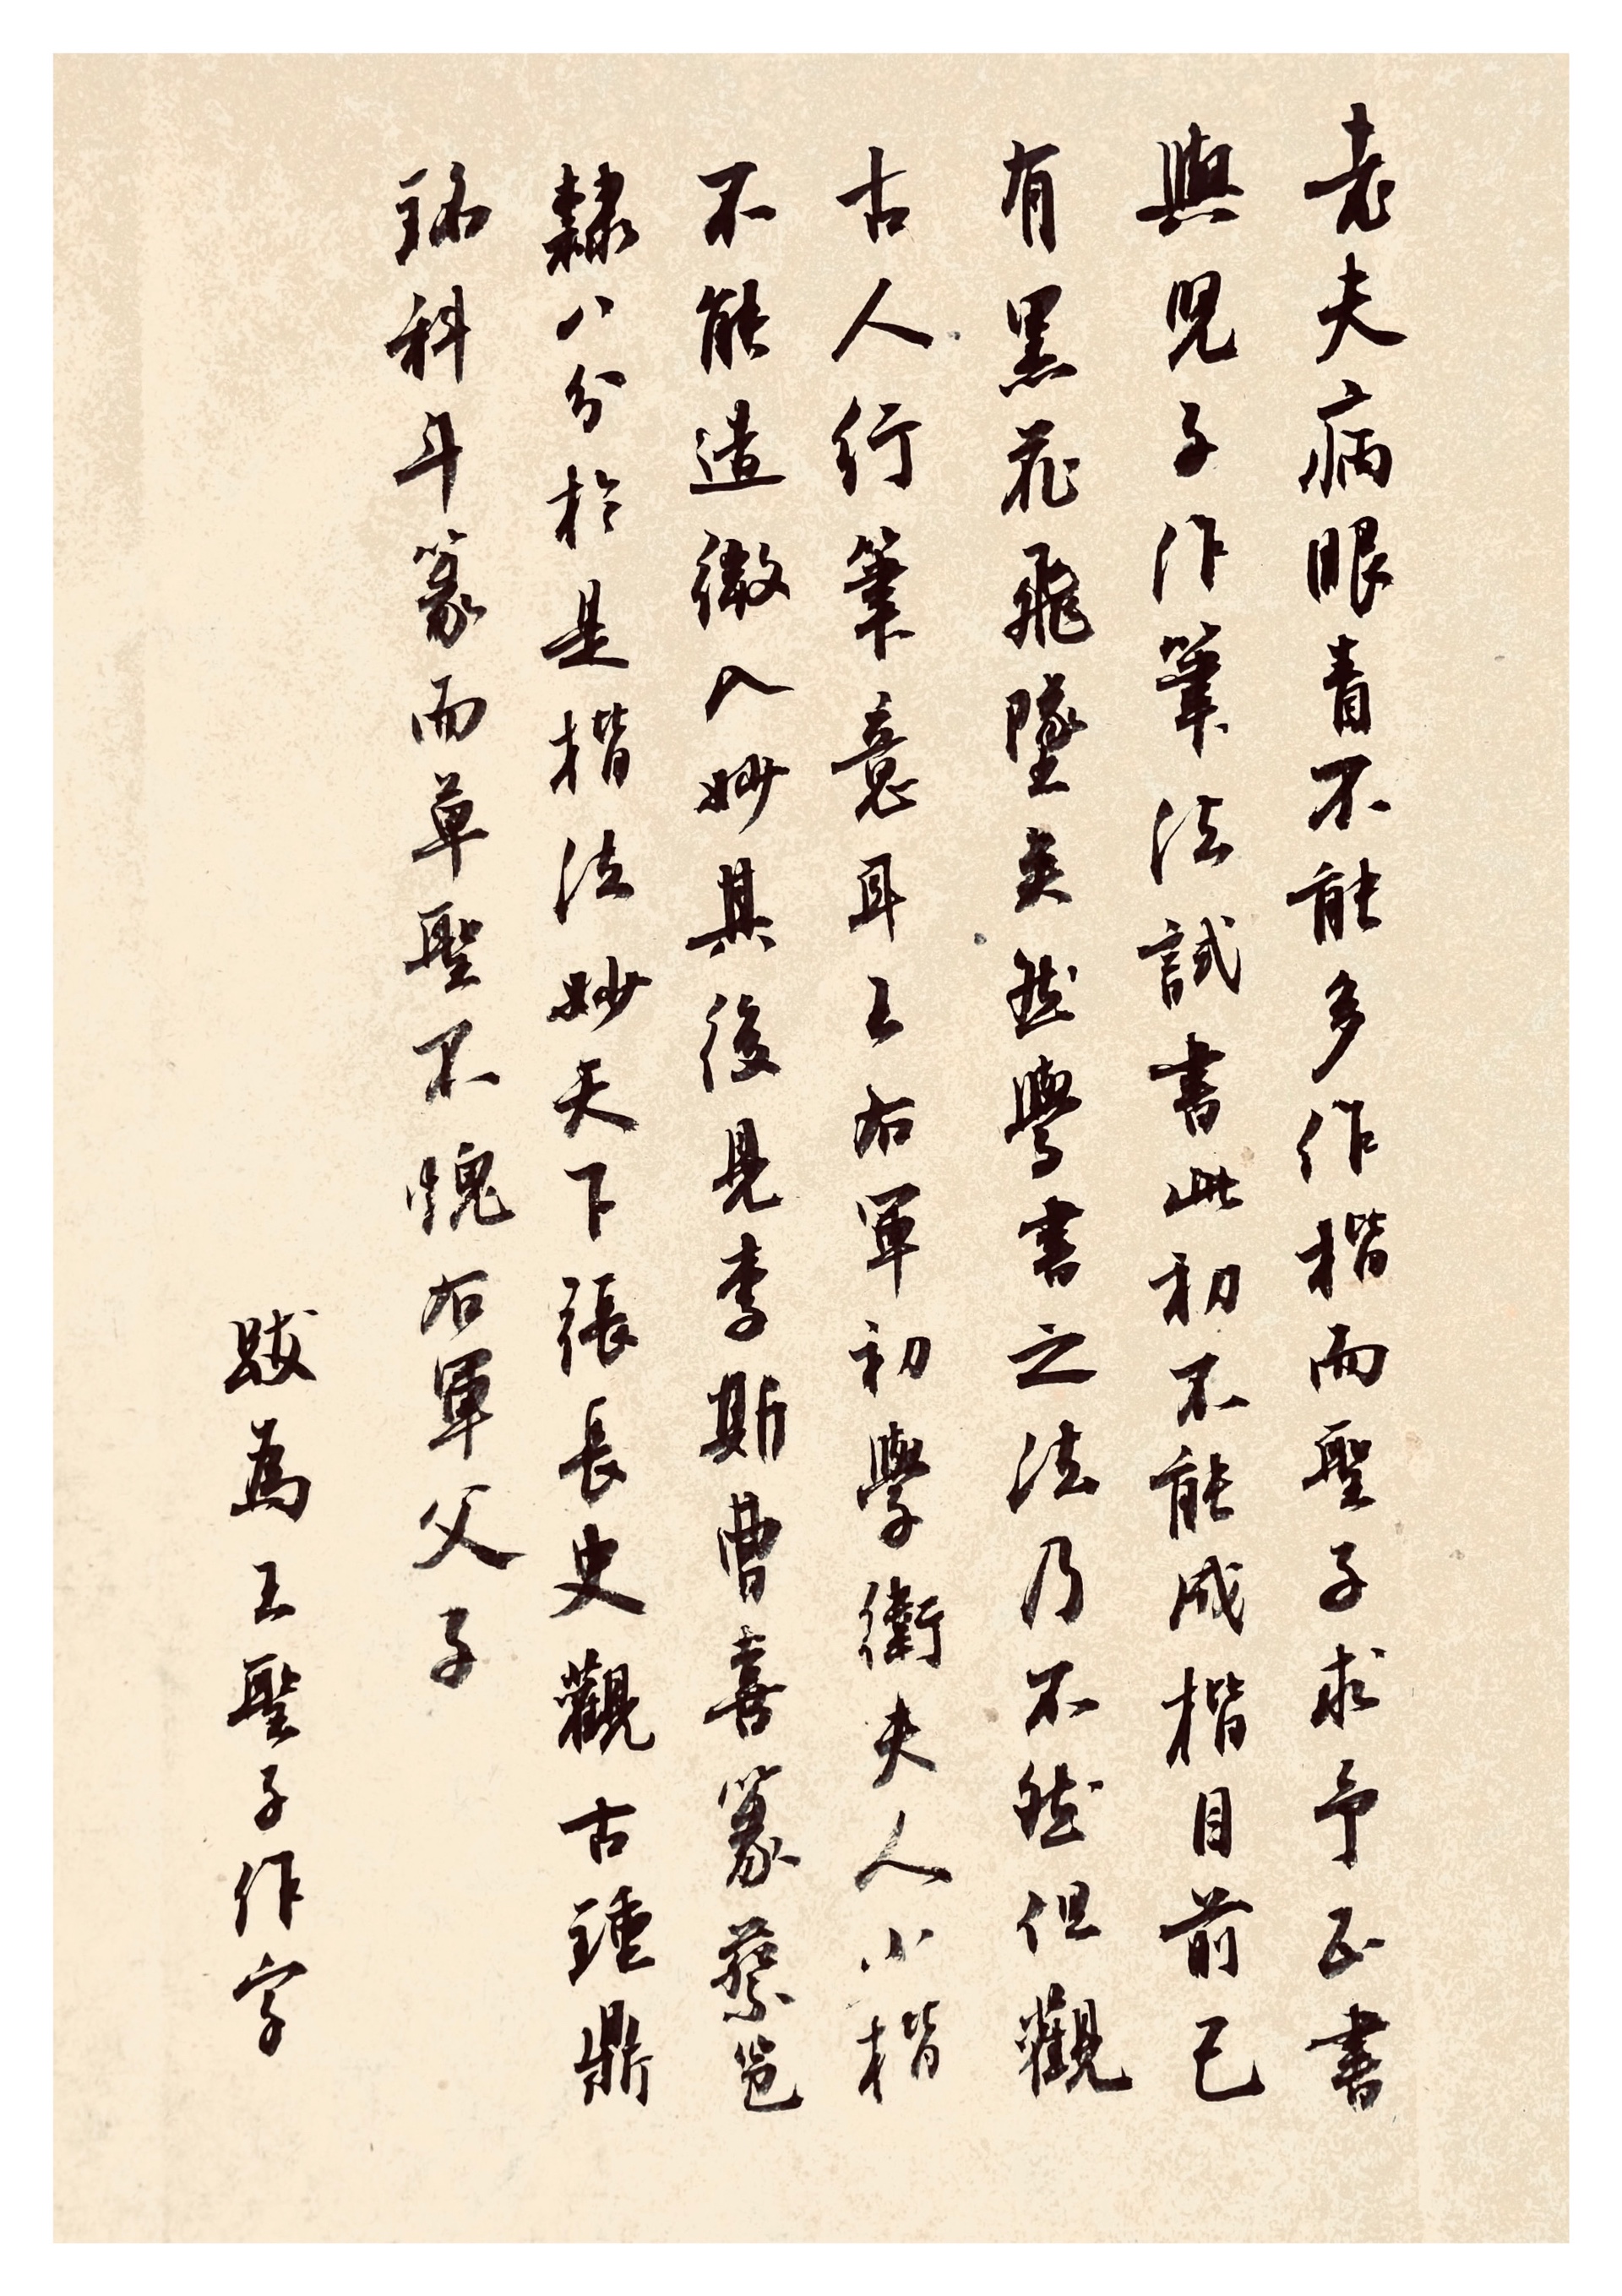 老夫病眼眚不能多作楷而聖予求予正書
與兒子作筆法試書此初不能成楷目前已
有黑花飛墜矣然學書之法乃不然但觀
古人行筆意耳王右軍初學衛夫人小楷
不能造微入妙其後見李斯曹喜篆蔡邕
隸八分於是楷法妙天下張長史觀古鍾鼎
銘科斗篆而草聖不愧右軍父子
跋為王聖予作字